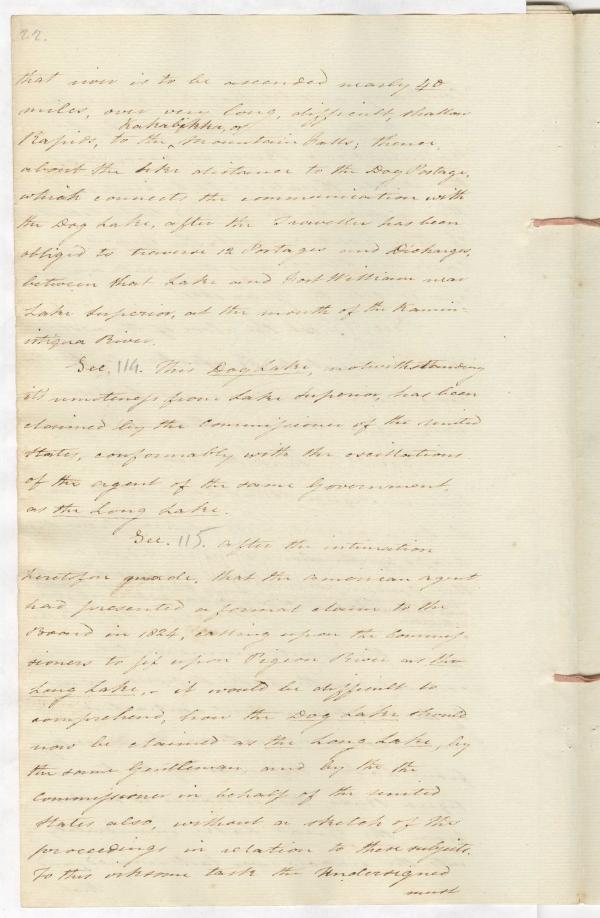 22.
that now is to be ascended nearly 40
miles, over very long, difficult, shallow
Kakabikka, or
Rapids, to the Mountain Falls; thence,
about the like distance to the Dog Portage,
which connects the communication with
the Dog Lake, after the Traveller has been
obliged to traverse 12 Portages and Discharges,
between that Lake and Fort William near
Lake Superior, at the mouth of the Kamin-
istiqua River.
Sec. 114. This Dog Lake, notwithstanding
its remoteness from Lake Superior, has been
claimed by the Commissioner of the United
States, conformably with the oscillations
of the agent of the same Government,
as the Long Lake.
Sec. 115. After the intimation
heretofore made, that the American agent
had presented a formal claim to the
Board in 1824, calling upon the Commis-
sioners to fix upon Pigeon River as the
Long Lake, - it would be difficult to
comprehend, how the Dog Lake should
now be claimed as the Long Lake, by
the same Gentleman, and by the the
Commissioner in behalf of the United
States also, without a sketch of the
proceedings in relation to these subjects.
To this irksome task the Undersigned
must